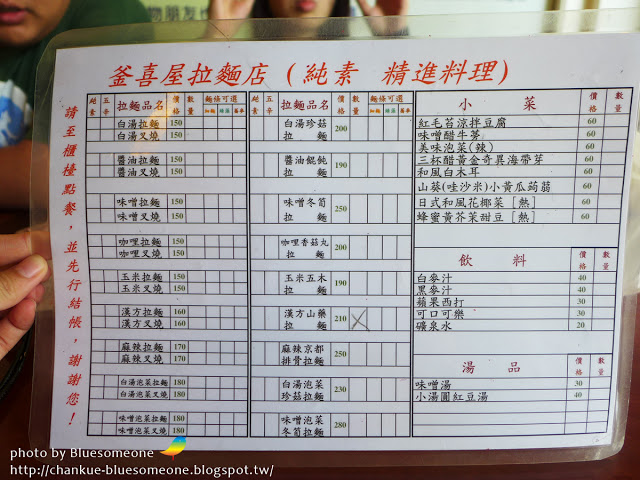 物朋友也
釜喜屋拉麵店（純素 精進料理）
請至櫃檯點餐，並先行結帳，謝謝您！
純素 五辛 拉麵品名 價格 數量 麵條可選
白湯拉麵 150
白湯叉燒 150
醬油拉麵 150
醬油叉燒 150
味噌拉麵 150
味噌叉燒 150
咖哩拉麵 150
咖哩叉燒 150
玉米拉麵 150
玉米叉燒 150
漢方拉麵 160
漢方叉燒 160
麻辣拉麵 170
麻辣叉燒 170
白湯泡菜拉麵 180
白湯泡菜叉燒 180
味噌泡菜拉麵 180
味噌泡菜叉燒 180
純素 五辛 拉麵品名 價格 數量 麵條可選
白湯珍菇拉麵 200
醬油餛飩拉麵 190
味噌冬筍拉麵 250
咖哩香菇丸拉麵 200
玉米五木拉麵 190
漢方山藥拉麵 210
麻辣京都排骨拉麵 250
白湯泡菜珍菇拉麵 230
味噌泡菜冬筍拉麵 280
小菜 價格 數量
紅毛苔涼拌豆腐 60
味噌醋牛蒡 60
美味泡菜(辣) 60
三杯醋黃金奇異海帶芽 60
和風白木耳 60
山葵(哇沙米)小黃瓜蒟蒻 60
日式和風花椰菜［熱］ 60
蜂蜜黃芥茉甜豆［熱］ 60
飲料 價格 數量
白麥汁 40
黑麥汁 40
蘋果西打 30
可口可樂 30
礦泉水 20
湯品 價格 數量
味噌湯 30
小湯圓紅豆湯 40
photo by Bluesomeone
http://chankue-bluesomeone.blogspot.tw/